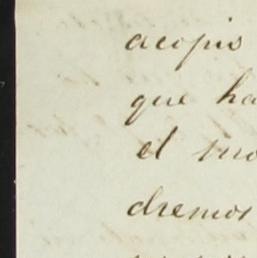 acopio
que ha
el mo
dremos